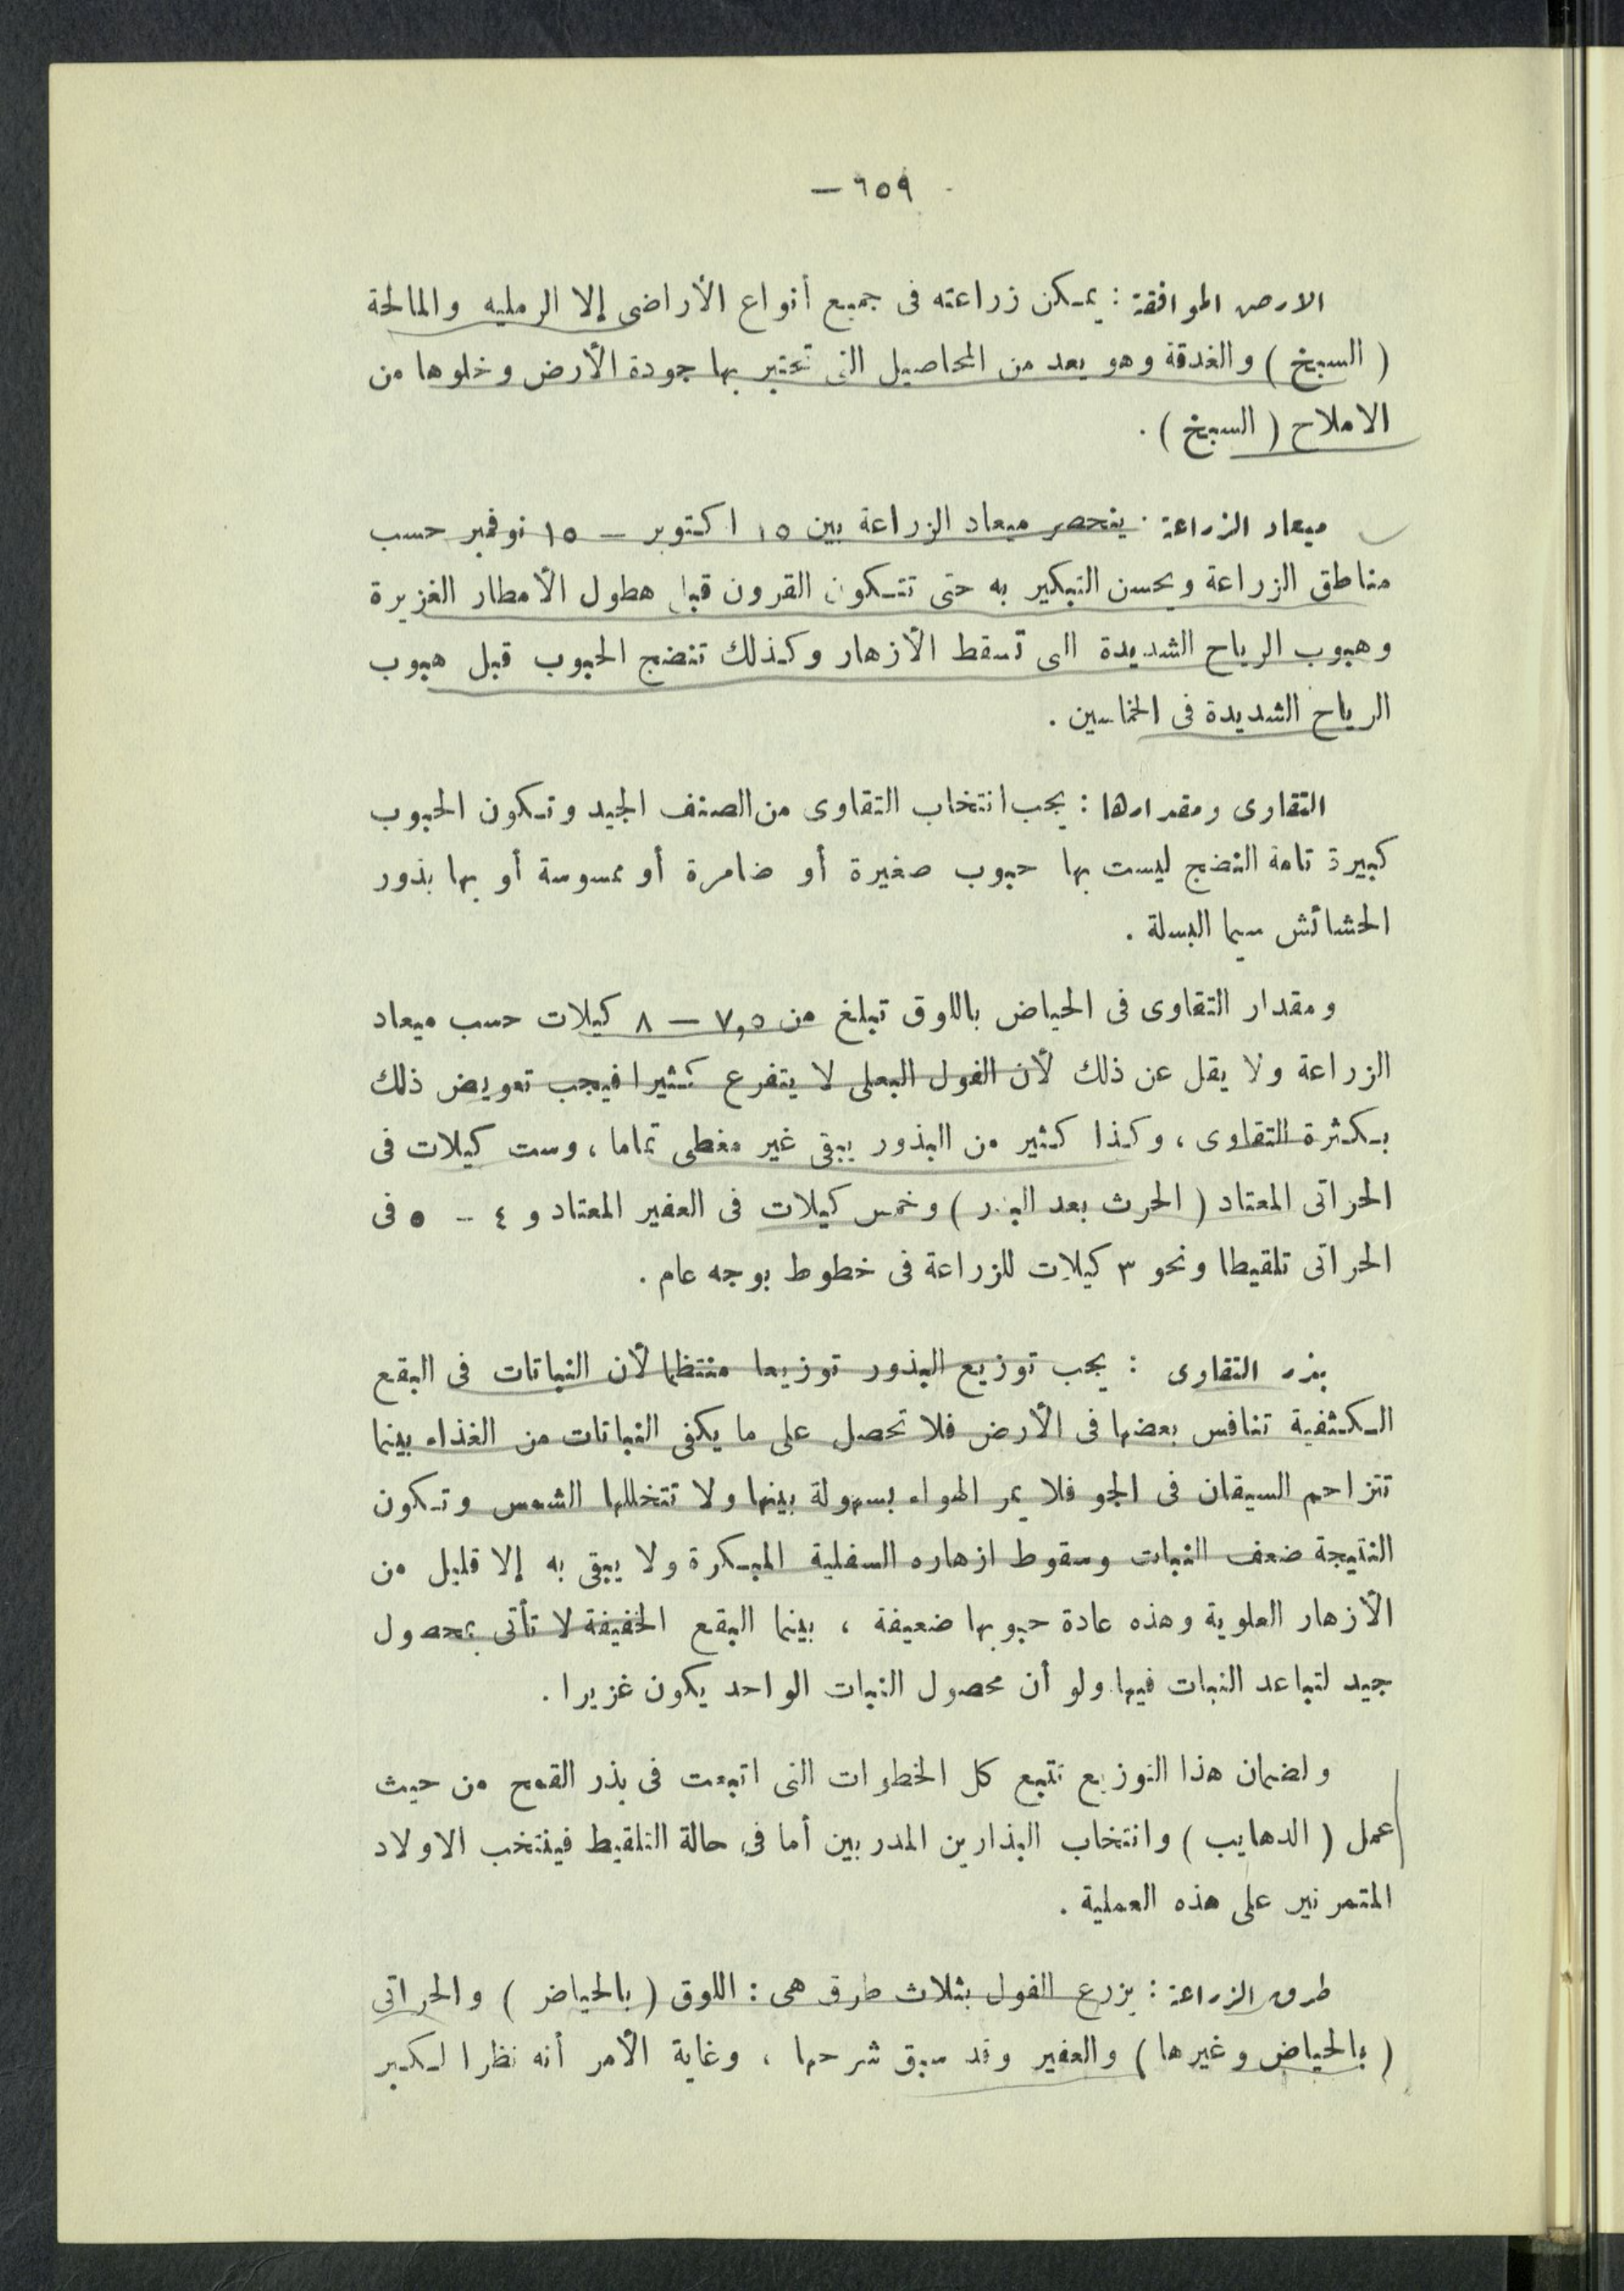 — ٦٥٩ —
الارض الموافقة : يمكن زراعته فى جميع أنواع الأراضى إلا الرمليه والمالحة
( السبخ ) والغدقة وهو يعد من المحاصيل التى تختبر بها جودة الأرض وخلوها من
الاملاح ( السبخ ) .
ميعاد الزراعة : ينحصر ميعاد الزراعة بين ١٥ اكتوبر — ١٥ نوفمبر حسب
مناطق الزراعة ويحسن التبكير به حتى تتكون القرون قبل هطول الأمطار الغزيرة
وهبوب الرياح الشديدة التى تسقط الأزهار وكذلك تنضج الحبوب قبل هبوب
الرياح الشديدة فى الخماسين .
التقاوى ومقدارها : يجب انتخاب التقاوى من الصنف الجيد وتكون الحبوب
كبيرة تامة النضج ليست بها حبوب صغيرة أو ضامرة أو مسوسة أو بها بذور
الحشائش سيما البسلة .
ومقدار التقاوى فى الحياض باللوق تبلغ من ٧,٥ — ٨ كيلات حسب ميعاد
الزراعة ولا يقل عن ذلك لأن الفول البعلى لا يتفرع كثيرا فيجب تعويض ذلك
بكثرة التقاوى ، وكذا كثير من البذور يبقى غير مغطى تماما ، وست كيلات فى
الحراتى المعتاد ( الحرث بعد البذر ) وخمس كيلات فى العفير المعتاد و ٤ - ٥ فى
الحراتى تلقيطا ونحو ٣ كيلات للزراعة فى خطوط بوجه عام .
بذر التقاوى : يجب توزيع البذور توزيعا منتظما لأن النباتات فى البقع
الكثفية تنافس بعضها فى الأرض فلا تحصل على ما يكفى النباتات من الغذاء بينما
تتزاحم السيقان فى الجو فلا يمر الهواء بسهولة بينها ولا تتخللها الشمس وتكون
النتيجة ضعف النبات وسقوط ازهاره السفلية المبكرة ولا يبقى به إلا قليل من
الأزهار العلوية وهذه عادة حبوبها ضعيفة ، بينما البقع الخفيفة لا تأتى بمحصول
جيد لتباعد النبات فيها ولو أن محصول النبات الواحد يكون غزيرا .
ولضمان هذا التوزيع نتبع كل الخطوات التى اتبعت فى بذر القمح من حيث
عمل ( الدهايب ) وانتخاب البذارين المدربين أما فى حالة التلقيط فينتخب الاولاد
المتمرنين على هذه العملية .
طرق الزراعة : يزرع الفول بثلاث طرق هى : اللوق ( بالحياض ) والحراتى
( بالحياض وغيرها ) والعفير وقد سبق شرحها ، وغاية الأمر أنه نظرا لكبر